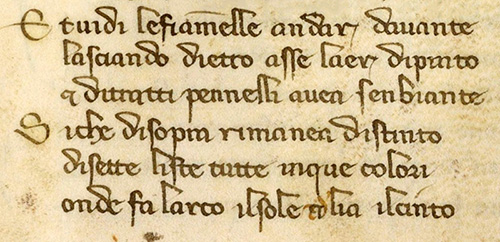 E tuidi le fiamelle andar davante
lasciando dietro asse laer dipinto
& di tratti pennelli avea senbiante
Si che disopra rimanea distinto
disette liste tutte inque colori
onde fa larco il sole & lia il cinto